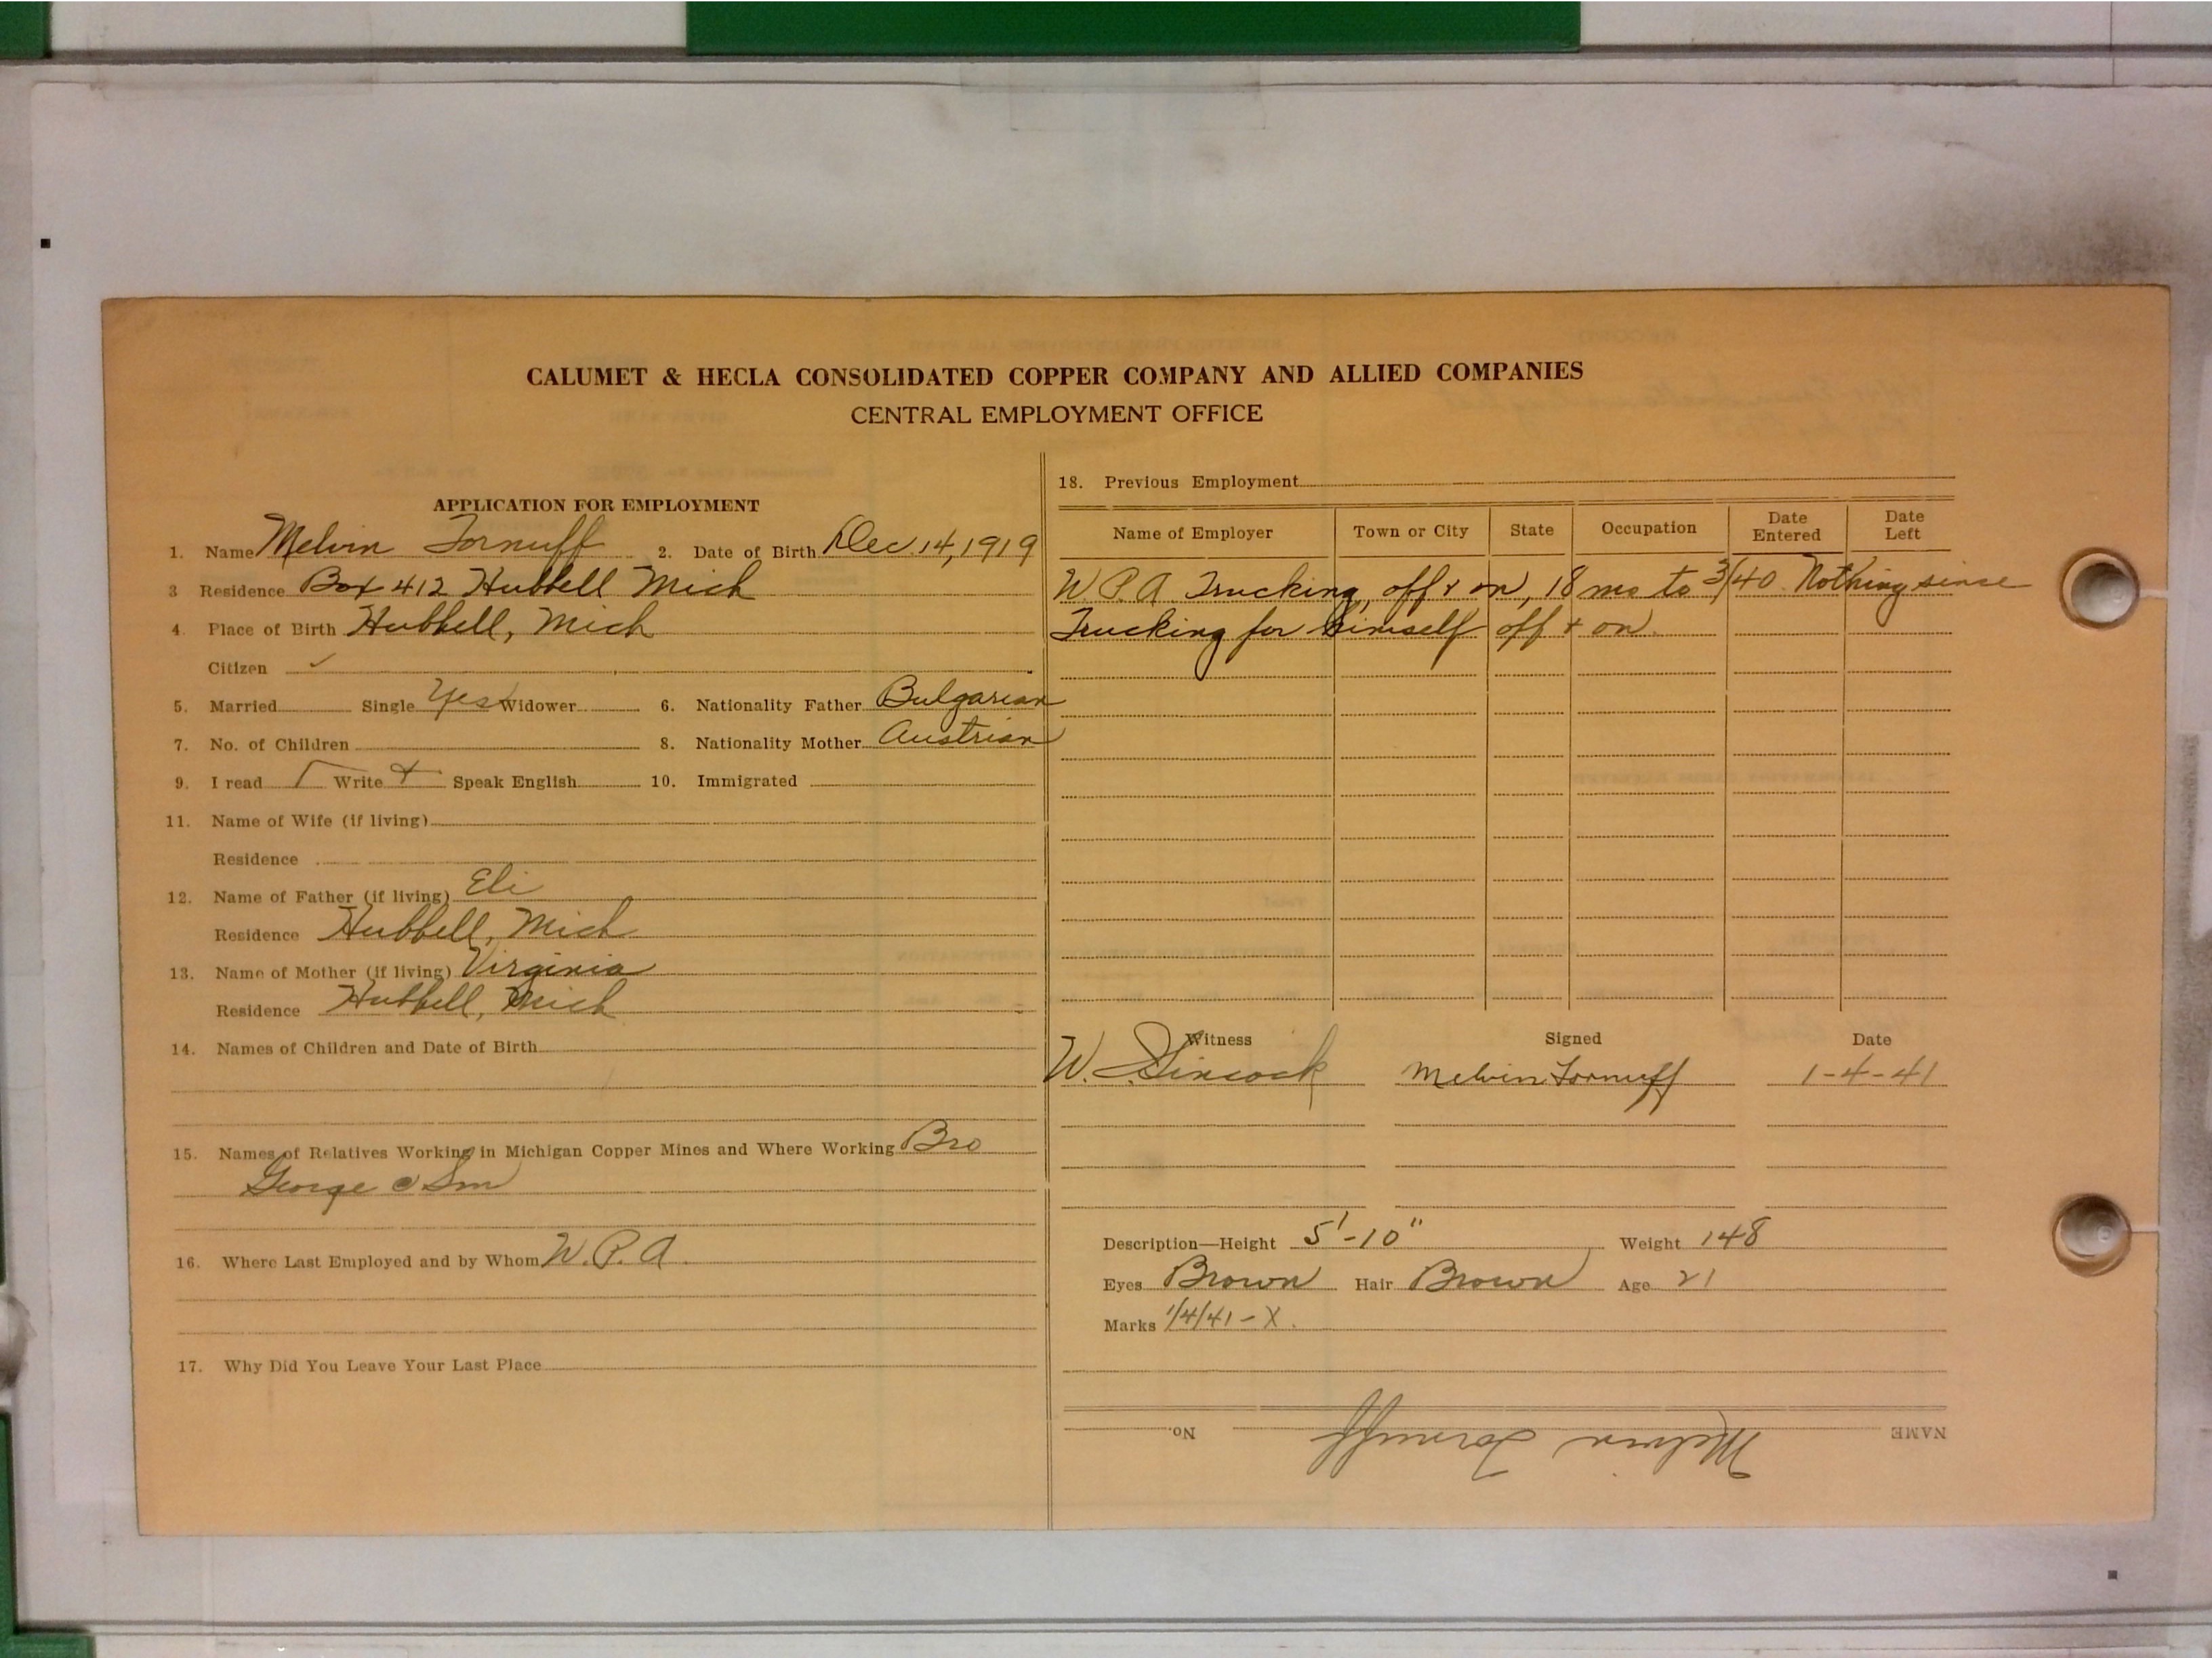 CALUMET & HECLA CONSOLIDATED COPPER COMPANY AND ALLIED COMPANIES
CENTRAL EMPLOYMENT OFFICE
APPLICATION FOR EMPLOYMENT
1. Name Melvin Tornuff 2. Date of Birth Dec. 14, 1919
3 Residence Box 412 Hubbell Mich
4. Place of Birth Hubbell, Mich
Citizen ✓
5. Married Single Yes Widower 6. Nationality Father Bulgarian
7. No. of Children 8. Nationality Mother Austrian
9. I read Write + Speak English 10. Immigrated
11. Name of Wife (if living)
Residence
12. Name of Father (if living) Eli
Residence Hubbell, Mich
13. Name of Mother (if living) Virginia
Residence Hubbell, Mich
14. Names of Children and Date of Birth
15. Names of Relatives Working in Michigan Copper Mines and Where Working Bro
George @ Sm
16. Where Last Employed and by Whom W.P.A.
17. Why Did You Leave Your Last Place
18. Previous Employment
Name of Employer Town or City State Occupation Date Entered Date Left
W P A Trucking, off + on, 18 mo to 3/40 Nothing since
Trucking for himself off + on
Witness Signed Date
W. Sincock Melvin Tornuff 1-4-41
Description—Height 5'-10" Weight 148
Eyes Brown Hair Brown Age 21
Marks 1/4/41 - X.
NAME Melvin Tornuff No.